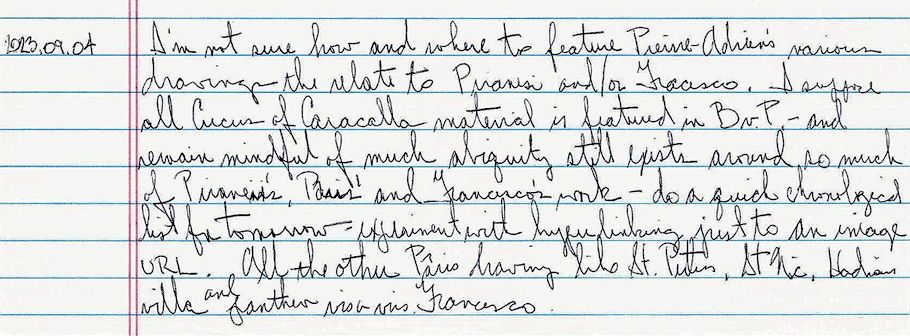 2023.09.04 I'm not sure how and where to feature Pierre-Adrien's various
drawings the relate to Piranesi and/or Fracisco. I suppose
all Circus of Caracalla material is featured in B.v.P. - and
remain mindful of much abiguity still exists around so much
of Piranesi's, Paris' and Francesco's work - do a quick chronological
list for tomorrow - expirement with hyperlinking just to an image
URL. All the other Pâris drawing like St. Peter's, St Nic, Hadrians
villa and Pantheon vis a vis Francesco.